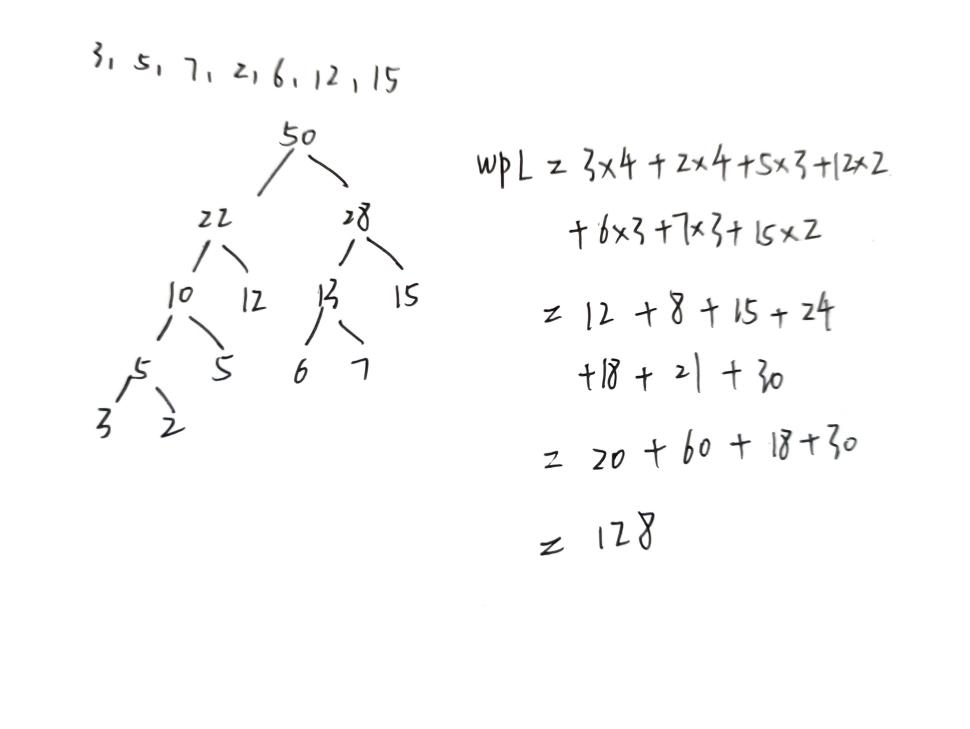 3, 5, 7, 2, 6, 12, 15
50
22 28
10 12 13 15
5 5 6 7
3 2
WPL = 3×4 + 2×4 + 5×3 + 12×2
+ 6×3 + 7×3 + 15×2
= 12 + 8 + 15 + 24
+ 18 + 21 + 30
= 20 + 60 + 18 + 30
= 128